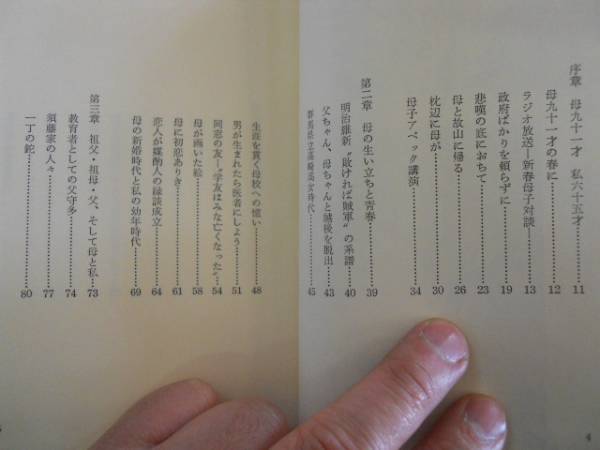 序章 母九十一才 私六十五才………11
母九十一才の春に………12
ラジオ放送―新春母子対談………13
政府ばかりを頼らずに………19
悲嘆の底におちて………23
母と故山に帰る………26
枕辺に母が………30
母子アベック講演………34
第二章 母の生い立ちと青春………39
明治維新〝敗ければ賊軍〟の系譜………40
父ちゃん、母ちゃんと越後を脱出………43
群馬県立高等高女時代………45
生涯を貫く母校への憶い………48
男が生まれたら医者にしよう………51
同窓の友―〝学友はみな亡くなった〟………54
母が画いた絵………58
母に初恋ありき………61
恋人が媒酌人の縁談成立………64
母の新婚時代と私の幼年時代………69
第三章 祖父・祖母・父、そして母と私………73
教育者としての父守多………74
須藤家の人々………77
一丁の鉈………80
4